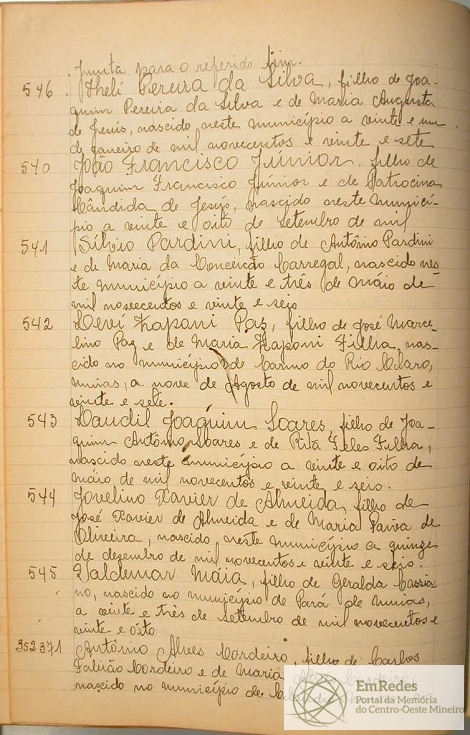 Junta para o referido fim.
546 Theli Pereira da Silva, filho de Joa-
quim Pereira da Silva e de Maria Augusta
de Jesus, nascido neste município a vinte e um
de janeiro de mil novecentos e vinte e sete
540 João Francisco Júnior, filho de
Joaquim Francisco Júnior e de Patrocina
Cândida de Jesus, nascido neste municí-
pio a vinte e oito de setembro de mil
541 Silvio Pardini, filho de Antônio Pardini
e de Maria da Conceição Carregal, nascido nes-
te município a vinte e três de máio de
mil novecentos e vinte e seis
542 Levi Zaponi Paz, filho de José Marce-
lino Paz e de Maria Zaponi Filha, nas-
cido no município de Carmo do Rio Claro,
minas, a nove de Agosto de mil novecentos e
vinte e sete.
543 Laudil Joaquim Soares, filho de Joa-
quim Antônio Soares e de Rita Teles Filha,
nascido neste município a vinte e oito de
máio de mil novecentos e vinte e seis.
544 Jovelino Xavier de Almeida, filho de
José Xavier de Almeida e de Maria Paiva de
Oliveira, nascido neste município a quinze
de dezembro de mil novecentos e vinte e seis.
545 Valdemar Máia, filho de Geralda Cassia-
no, nascido no município de Pará de minas,
a vinte e três de setembro de mil novecentos e
vinte e oito
352371 Antônio Alves Cordeiro, filho de Carlos
Fabião Cordeiro e de Maria
nascido no município de
EmRedes
Portal da Memória
do Centro-Oeste Mineiro